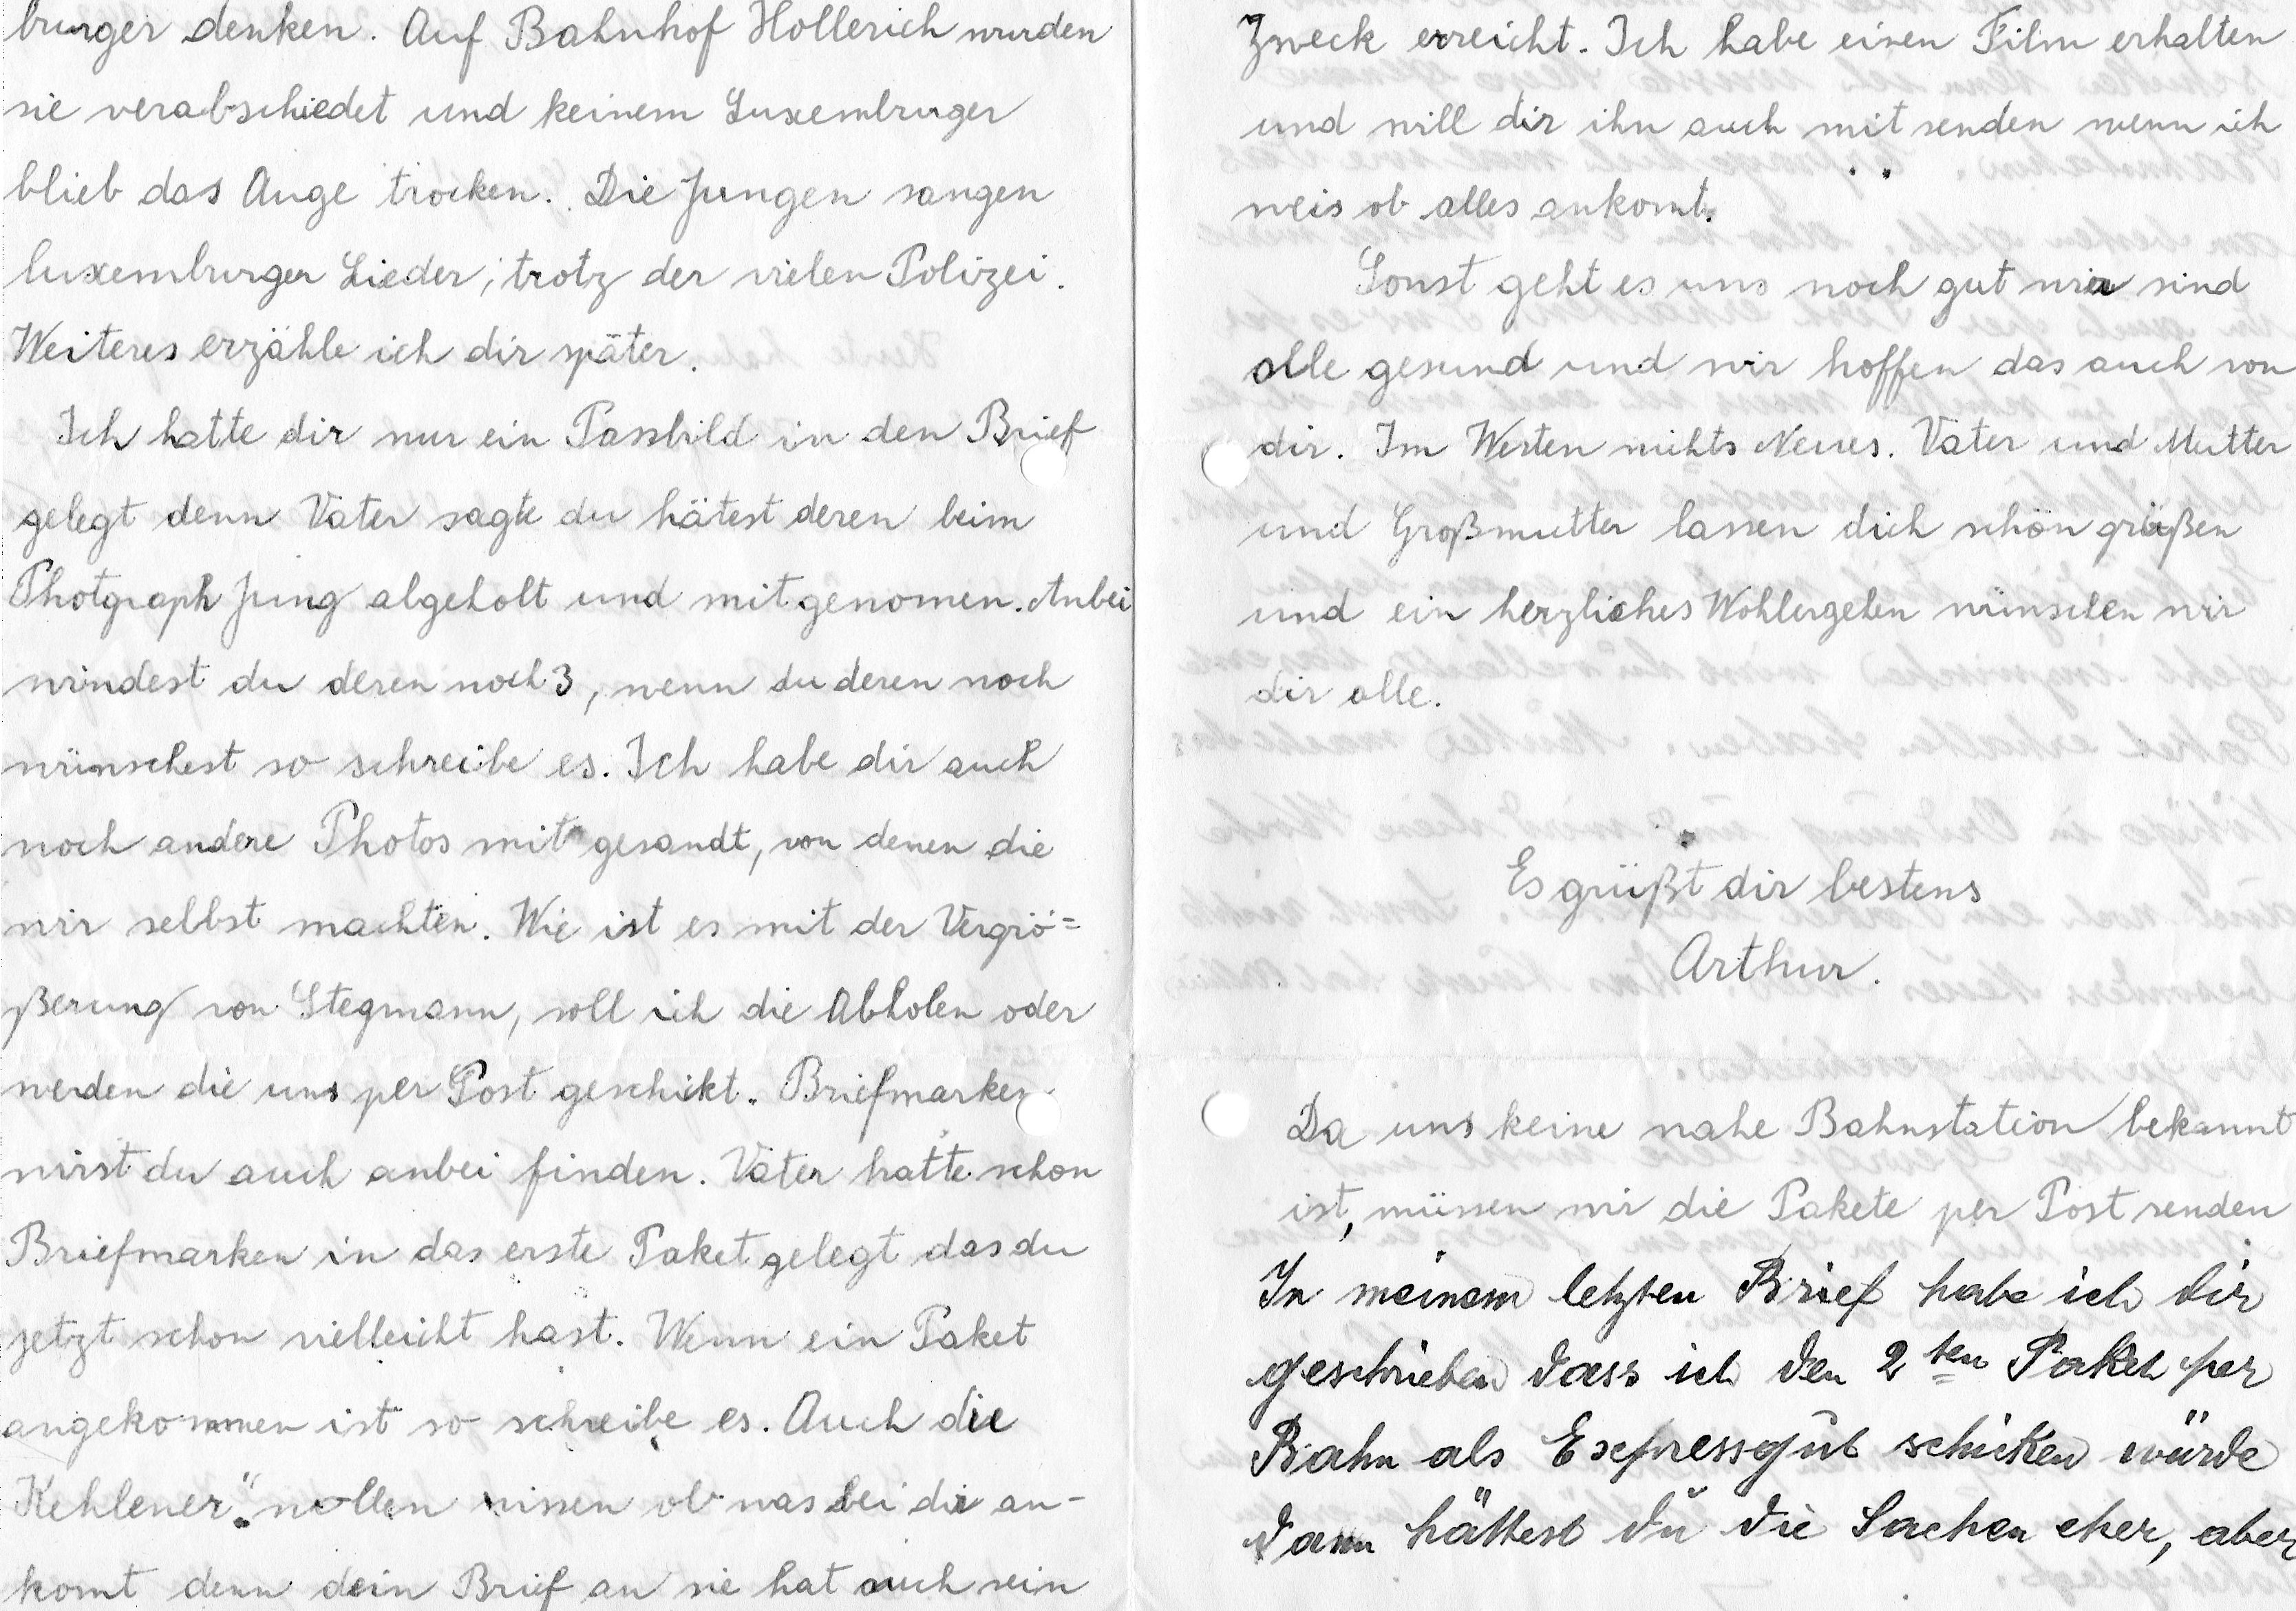 burger denken. Auf Bahnhof Hollerich wurden
sie verabschiedet und keinem Luxemburger
blieb das Auge trocken. Die Jungen sangen
luxemburger Lieder, trotz der vielen Polizei.
Weiteres erzähle ich dir später.
Ich hatte dir nur ein Passbild in den Brief
gelegt denn Vater sagte du hätest deren beim
Photgraph Jung abgeholt und mitgenomen. Anbei
windest du deren noch 3, wenn du deren noch
wünschest so schreibe es. Ich habe dir auch
noch andere Photos mit gesandt, von denen die
wir selbst machten. Wie ist es mit der Vergrö=
ßerung von Stegmann, soll ich die Abholen oder
werden die uns per Post geschikt. Briefmarken
wirst du auch anbei finden. Vater hatte schon
Briefmarken in das erste Paket gelegt das du
jetzt schon vielleicht hast. Wenn ein Paket
angekommen ist so schreibe es. Auch die
Kehlener" wollen wissen ob was bei dir an-
komt denn dein Brief an sie hat auch sein
Zweck erreicht. Ich habe einen Film erhalten
und will dir ihn auch mit senden wenn ich
weis ob alles ankomt.
Sonst geht es uns noch gut wir sind
alle gesund und wir hoffen das auch von
dir. Im Westen nichts Neues. Vater und Mutter
und Großmutter lassen dich schön grüßen
und ein herzliches Wohlergehen wünschen wir
dir alle.
Es grüßt dir bestens
Arthur.
Da uns keine nahe Bahnstation bekannt
ist, müssen wir die Pakete per Post senden
In meinem letzten Brief habe ich dir
geschrieben dass ich den 2ten Paket per
Bahn als Expressgut schicken würde
dann hättest du die Sachen eher, aber